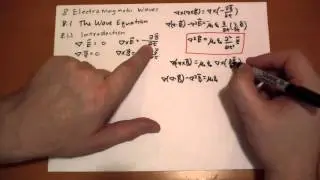 8. Electromagnetic Waves
8.1 The Wave Equation
8.1.1 Introduction
∇·E = 0 ∇×E = -∂B/∂t
∇·B = 0 ∇×B =
∇×(∇×E) = ∇×(-∂B/∂t)
∇(∇·E) - ∇²E =
∇²E = μ₀ε₀ ∂²/∂t² E
∇×(∇×B) = μ₀ε₀ ∇×
∇(∇·B) - ∇²B = μ₀ε₀